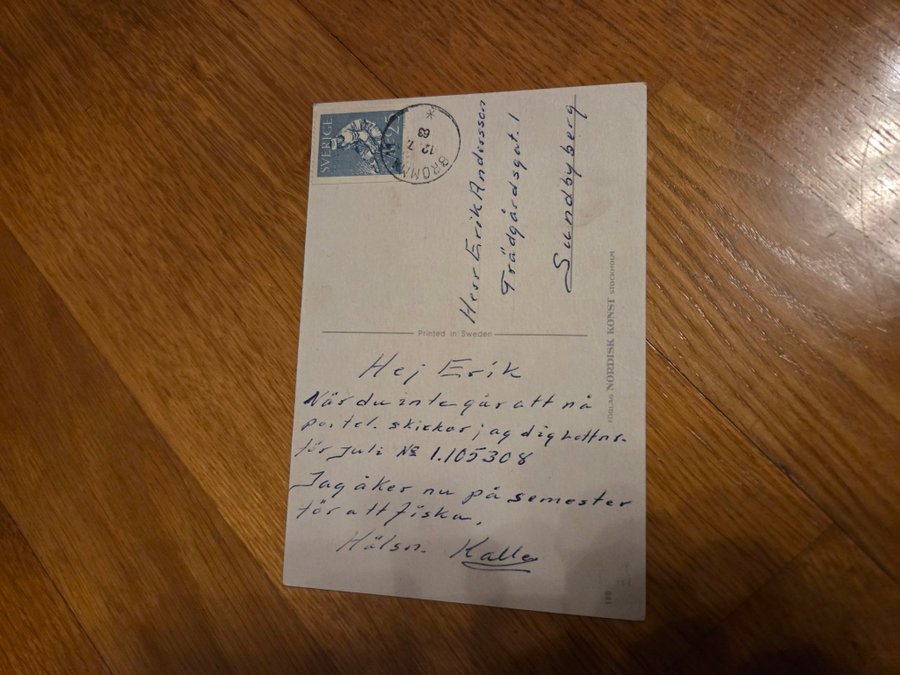 Hej Erik
När du inte går att nå
per tel. skickar jag dig lottnr.
för Juli № 1.105308
Jag åker nu på semester
för att fiska.
Hälsn. Kalle
Printed in Sweden
SVERIGE 25
BROMMA
12.7
63
Herr Erik Andersson
Trädgårdsgat. 1
Sundbyberg
FÖRLAG NORDISK KONST STOCKHOLM